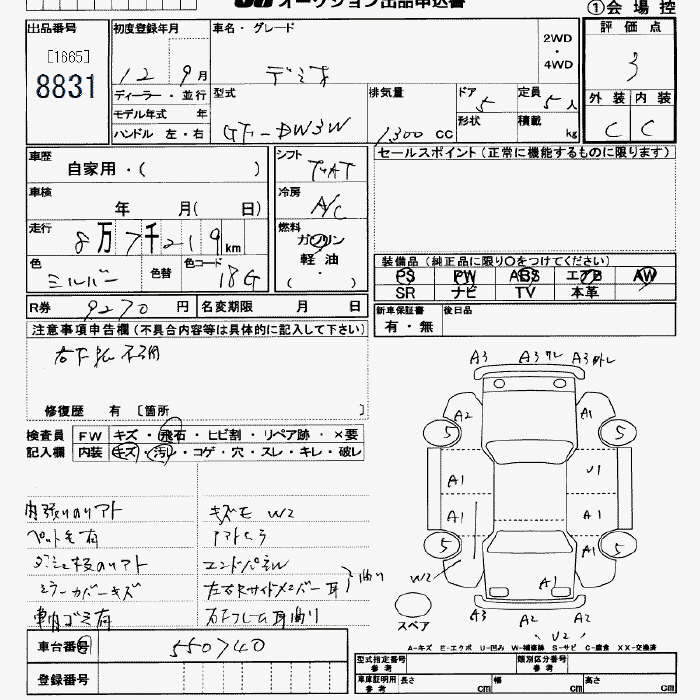 オークション出品申込書
①会場控
出品番号
[1665]
8831
初度登録年月
12 9月
ディーラー・並行
モデル年式 年
ハンドル 左・右
車名・グレード
デミオ
2WD
・
4WD
型式
GF-DW3W
排気量
1300 cc
ドア
5
形状
定員
5人
積載
kg
評価点
3
外装 内装
C C
車歴
自家用・( )
車検
年 月( 日)
走行
8万7千219km
色
シルバー
色替
色コード
18G
シフト
冷房
A/C
燃料
ガソリン
軽油
・
( )
セールスポイント(正常に機能するものに限ります)
装備品(純正品に限り○をつけてください)
PS PW ABS エアB AW
SR ナビ TV 本革
新車保証書
有・無
後日品
R券 9270 円
名変期限 月 日
注意事項申告欄(不具合内容等は具体的に記入して下さい)
修復歴 有 [箇所 ]
検査員
記入欄
FW キズ・飛石・ヒビ割・リペア跡・×要
内装 キズ・汚レ・コゲ・穴・スレ・キレ・破レ
内張りのリアト
ペット毛有
ダッシュ板のリアト
ミラーカバーキズ
車内ゴミ有
キズモ W2
アフトセラ
エンドパネW
左右Rサイドメンバー耳
右Fフレーム耳曲り
曲り
A3 A3ワレ A3外レ
A2 A1
5 5
A1 U1
A1 A1
5 5
W2 A1 A1
スペア
A3 A2 A2
U2
A-キズ E-エクボ U-凹み W-補修跡 S-サビ C-腐食 XX-交換済
車台番号
550740
登録番号
型式指定番号
参考
類別区分番号
参考
車庫証明用
参考
長さ cm 幅 cm 高さ cm